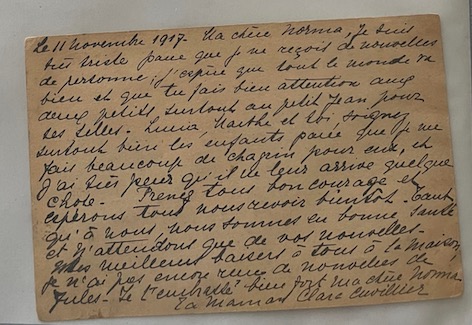 Le 11 Novembre 1917 - Ma chère Norma, Je suis
très triste parce que je ne reçois de nouvelles
de personne; j'espère que tout le monde va
bien et que tu fais bien attention aux
deux petits, surtout au petit Jean pour
ses selles - Lucia, Marthe et toi, soignez
surtout bien les enfants parce que je me
fais beaucoup de chagrin pour eux, et
j'ai très peur qu'il ne leur arrive quelque
chose - Prenez tous bon courage et
espérons tous nous revoir bientôt - Tant
qu'à nous nous sommes en bonne santé
et n'attendons que de vos nouvelles -
mes meilleurs baisers à tous à la maison
je n'ai pas encore reçu de nouvelles de
Jules - Je t'embrasse bien fort ma chère Norma
Ta maman Clara Cuvillier